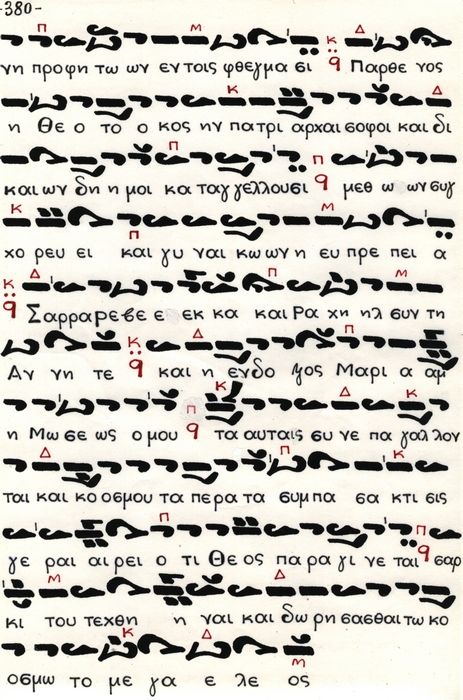 -380-
νη προφη τω ων εν τοις φθεγμα σι q Παρθε νος
η Θε ο το ο κος ην πατρι αρχαι σοφοι και δι
και ων δη η μοι κα ταγ γελλουσι q μεθ ω ων συγ
χο ρευ ει και γυ ναι κω ων η ευ πρε πει α
q Σαρραρεβε ε εκ κα και Ρα χη ηλ συν τη
Αν νη τε q και η ενδο ξος Μαρι α αμ
η Μω σε ως ο μου q τα αυταις συ νε πα γαλ λον
ται και κο οσμου τα περα τα συμπα σα κτι σις
γε ραι αι ρει ο τι Θε ος πα ρα γι νε ται q σαρ
κι του τεχθη η ναι και δω ρη σασθαι τω κο
οσμω το με γα ε λε ος